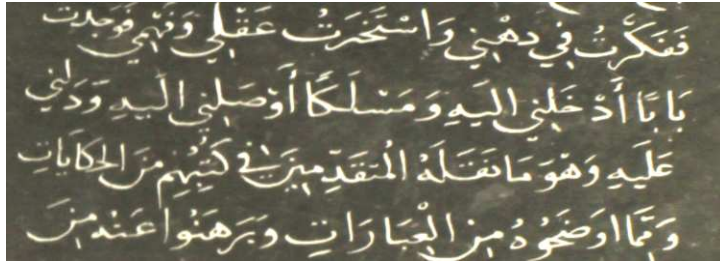 فَفَكَّرْتُ فِي ذِهْنِي وَاسْتَخْبَرْتُ عَقْلِي وَفَهْمِي فَوَجَدْتُ
بَابًا أَدْخَلَنِي إِلَيْهِ وَمَسْلَكًا أَوْصَلَنِي إِلَيْهِ وَدَلَّنِي
عَلَيْهِ وَهُوَ مَا نَقَلَهُ الْمُتَقَدِّمِينَ فِي كُتُبِهِمْ مِنَ الْحِكَايَاتِ
وَمِمَّا اَوْضَحُوهُ مِنَ الْعِبَارَاتِ وَبَرْهَنُوا عَنْهُ مِنَ